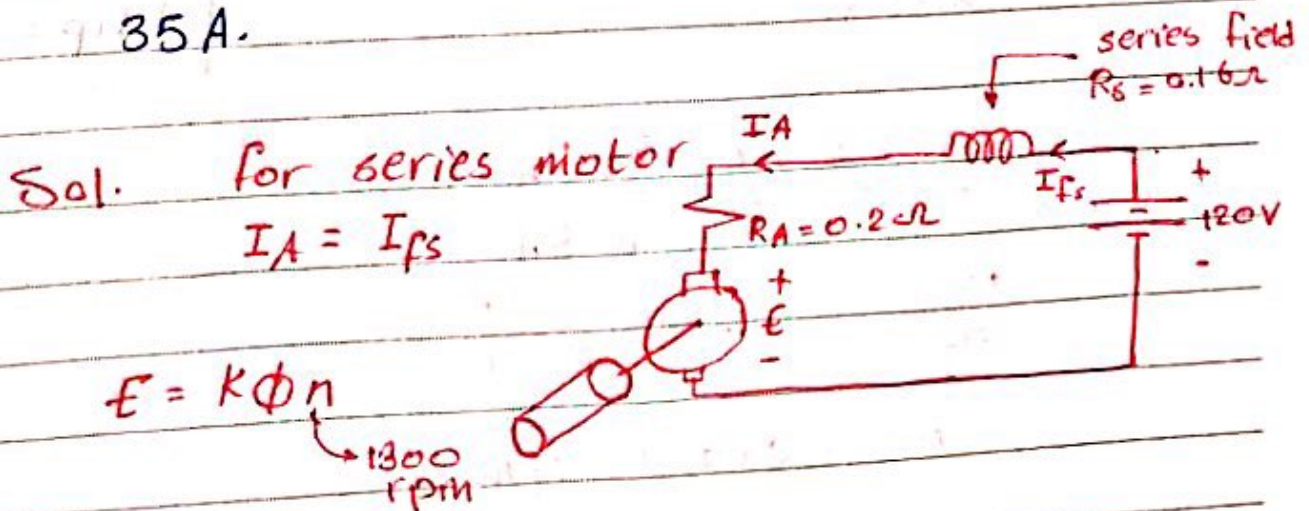 35 A.
series field
Rs = 0.16Ω
IA
Sol. for series motor
Ifs
+
120V
-
IA = Ifs
RA = 0.2Ω
+
E
-
E = KΦn
1300
rpm